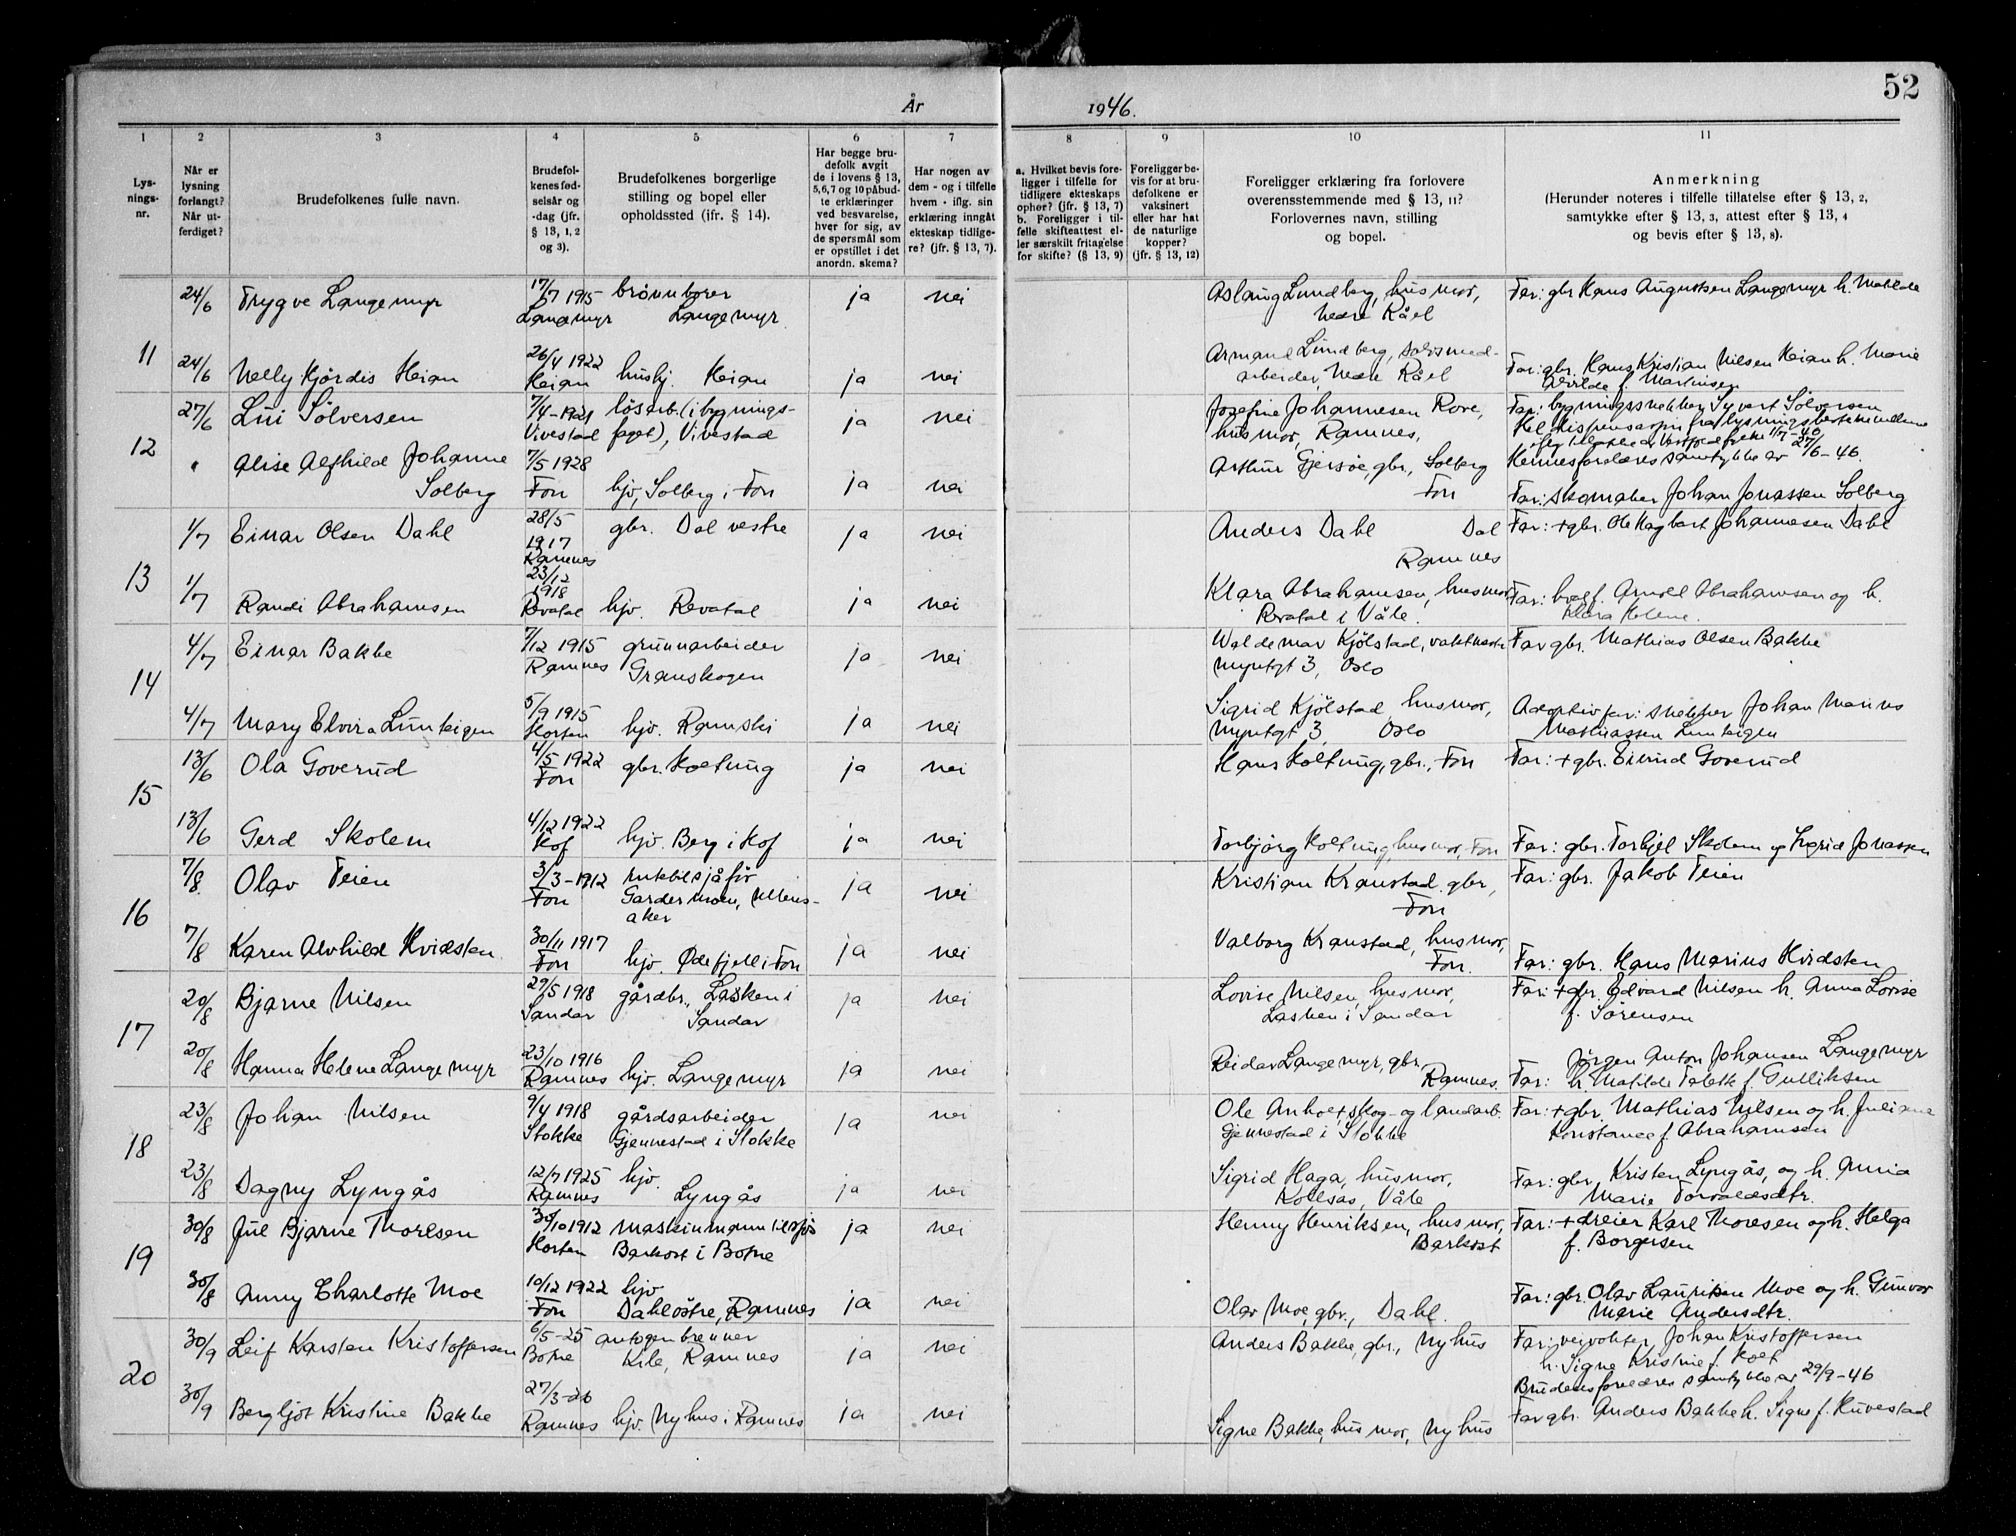 52
År 1946.
1 2 3 4 5 6 7 8 9 10 11
Lys-
nings-
nr.
Når er
lysning
forlangt?
Når ut-
ferdiget?
Brudefolkenes fulle navn.
Brudefol-
kenes fød-
selsår og
-dag (jfr.
§ 13, 1, 2
og 3).
Brudefolkenes borgerlige
stilling og bopel eller
opholdssted (ifr. § 14).
Har begge bru-
defolk avgit
de i lovens § 13,
5, 6, 7 og 10 påbud-
te erklæringer
ved besvarelse,
hver for sig, av
de spørsmål som
er opstillet i det
anordn. skema?
Har nogen av
dem - og i tilfelle
hvem - iflg. sin
erklæring inngåt
ekteskap tidlige-
re? (jfr. § 13, 7).
a. Hvilket bevis fore-
ligger i tilfelle for
tidligere ekteskaps
ophør? (jfr. § 13, 7)
b. Foreligger i til-
felle skifteattest el-
ler særskilt fritagelse
for skifte? (§ 13, 9)
Foreligger be-
vis for at bru-
defolkene er
vaksinert
eller har hat
de naturlige
kopper?
(jfr. § 13, 12)
Foreligger erklæring fra forlovere
overensstemmende med § 13, 11?
Forlovernes navn, stilling
og bopel.
Anmerkning
(Herunder noteres i tilfelle tillatelse efter § 13, 2,
samtykke efter § 13, 3, attest efter § 13, 4
og bevis efter § 13, 8).
11
24/6 Trygve Langemyr 17/7 1915 Langemyr brønnborer Langemyr ja nei
Aslaug Lundberg, husmor, Nedre Råel
Far: gbr Hans Augustsen Langemyr h. Matilde
24/6 Nelly Hjørdis Heian 26/4 1922 Heian hushj. Heian ja nei
Armand Lundberg, salismed-
arbeider, Nedre Råel
Far: gbr. Hans Kristian Nilsen Heian h. Marie
Alvilde f. Martinsen
12
27/6 Lui Sølversen 7/4-1921 Vivestad løsarb. (i bygnings-
faget), Vivestad ja nei
Josefine Johannesen Rove,
husmor, Ramnes,
Far: bygningssnekker Syvert Sølversen
Kgl. dispensasjon fra lysningsbestemmelsene
1/7-40
" Alise Alfhild Johanne
Solberg 7/5 1928 Fon hjv, Solberg i Fon ja nei
Arthur Gjersøe, gbr., Solberg
Fon
Hennes foreldres samtykke av 27/6-46.
Far: skomaker Johan Jonassen Solberg
13
1/7 Einar Olsen Dahl 28/5 1917 Ramnes gbr. Dal vestre ja nei
Anders Dahl Dal
Ramnes
Far: + gbr. Ole Hagbart Johannesen Dahl
1/7 Randi Abrahamsen 23/12 1918 Revatal hjv. Revatal ja nei
Klara Abrahamsen, husmor
Revatal i Våle.
Far: Arnold Abrahamsen og h.
Klara Helene.
14
4/7 Einar Bakke 7/12 1915 Ramnes grunnarbeider
Granskogen ja nei
Waldemar Kjølstad, vaktmester
Myntgt 3, Oslo
Far gbr. Mathias Olsen Bakke
4/7 Mary Elvira Lunteigen 5/9 1915 Horten hjv. Ramski ja nei
Sigrid Kjølstad husmor,
Myntgt 3, Oslo
Adoptivfar: snekker Johan Marius
Mathiassen Lunteigen
15
13/6 Ola Goverud 4/5 1922 Fon gbr. Holtung ja nei
Hans Holtung, gbr., Fon
Far: + gbr. Eivind Goverud
13/6 Gerd Skolem 4/12 1922 Hof hjv. Berg i Hof ja nei
Torbjørg Holtung, husmor, Fon
Far: gbr. Torkjel Skolem og Ingrid Jonassen
16
7/8 Olav Teien 3/3-1912 Fon rutebilsjåfør
Gardermoen, Ullens-
aker ja nei
Kristian Kranstad gbr,
Fon
Far: gbr. Jakob Teien
7/8 Karen Alvhild Hvidsten 30/11 1917 Fon hjv. Ødefjell i Fon ja nei
Valborg Kranstad, husmor,
Fon.
Far: gbr. Hans Marius Hvidsten
17
20/8 Bjarne Nilsen 29/5 1918 Sandar gårdbr., Lasken i
Sandar ja nei
Lovise Nilsen, husmor,
Lasken i Sandar
Far: + gbr. Edvard Nilsen h. Anna Lovise
f. Sørensen
20/8 Hanna Helene Langemyr 23/10 1916 Ramnes hjv. Langemyr ja nei
Reidar Langemyr, gbr.
Ramnes.
Far: Jørgen Anton Johansen Langemyr
h. Matilde Tolette f. Gulliksen
18
23/8 Johan Nilsen 9/4 1918 Stokke gårdsarbeider
Gjennestad i Stokke ja nei
Ole Anholt skog- og landarb.
Gjennestad i Stokke
Far: + gbr. Mathias Nilsen og h. Juliane
Konstance f. Abrahamsen
23/8 Dagny Lyngås 12/7 1925 Ramnes hjv. Lyngås ja nei
Sigrid Haga, husmor,
Kollsås, Våle
Far: gbr Kristen Lyngås, og h. Anna
Marie Torvaldsdtr.
19
30/8 Jul Bjarne Thoresen 30/10 1912 Horten maskinmann tilsjøs
Barkost i Botne ja nei
Henny Henriksen, husmor,
Barkost
Far: + dreier Karl Thoresen og h. Helga
f. Borgersen
30/8 Anny Charlotte Moe 10/12 1922 Fon hjv
Dahl østre, Ramnes ja nei
Olav Moe, gbr., Dahl.
Far: gbr. Olav Lauritsen Moe og h. Gunvor
Marie Andersdtr.
20
30/9 Leif Karsten Kristoffersen 6/5-25 Botne autogenbrenner
Kile, Ramnes ja nei
Anders Bakke, gbr., Nyhus
Far: veivokter Johan Kristoffersen
h. Signe Kristine f. Holt
Brudens foreldres samtykke av 29/9-46
30/9 Bergljot Kristine Bakke 27/3-26 Ramnes hjv. Nyhus i Ramnes ja nei
Signe Bakke, husmor, Nyhus
Far gbr. Anders Bakke h. Signe f. Huvestad